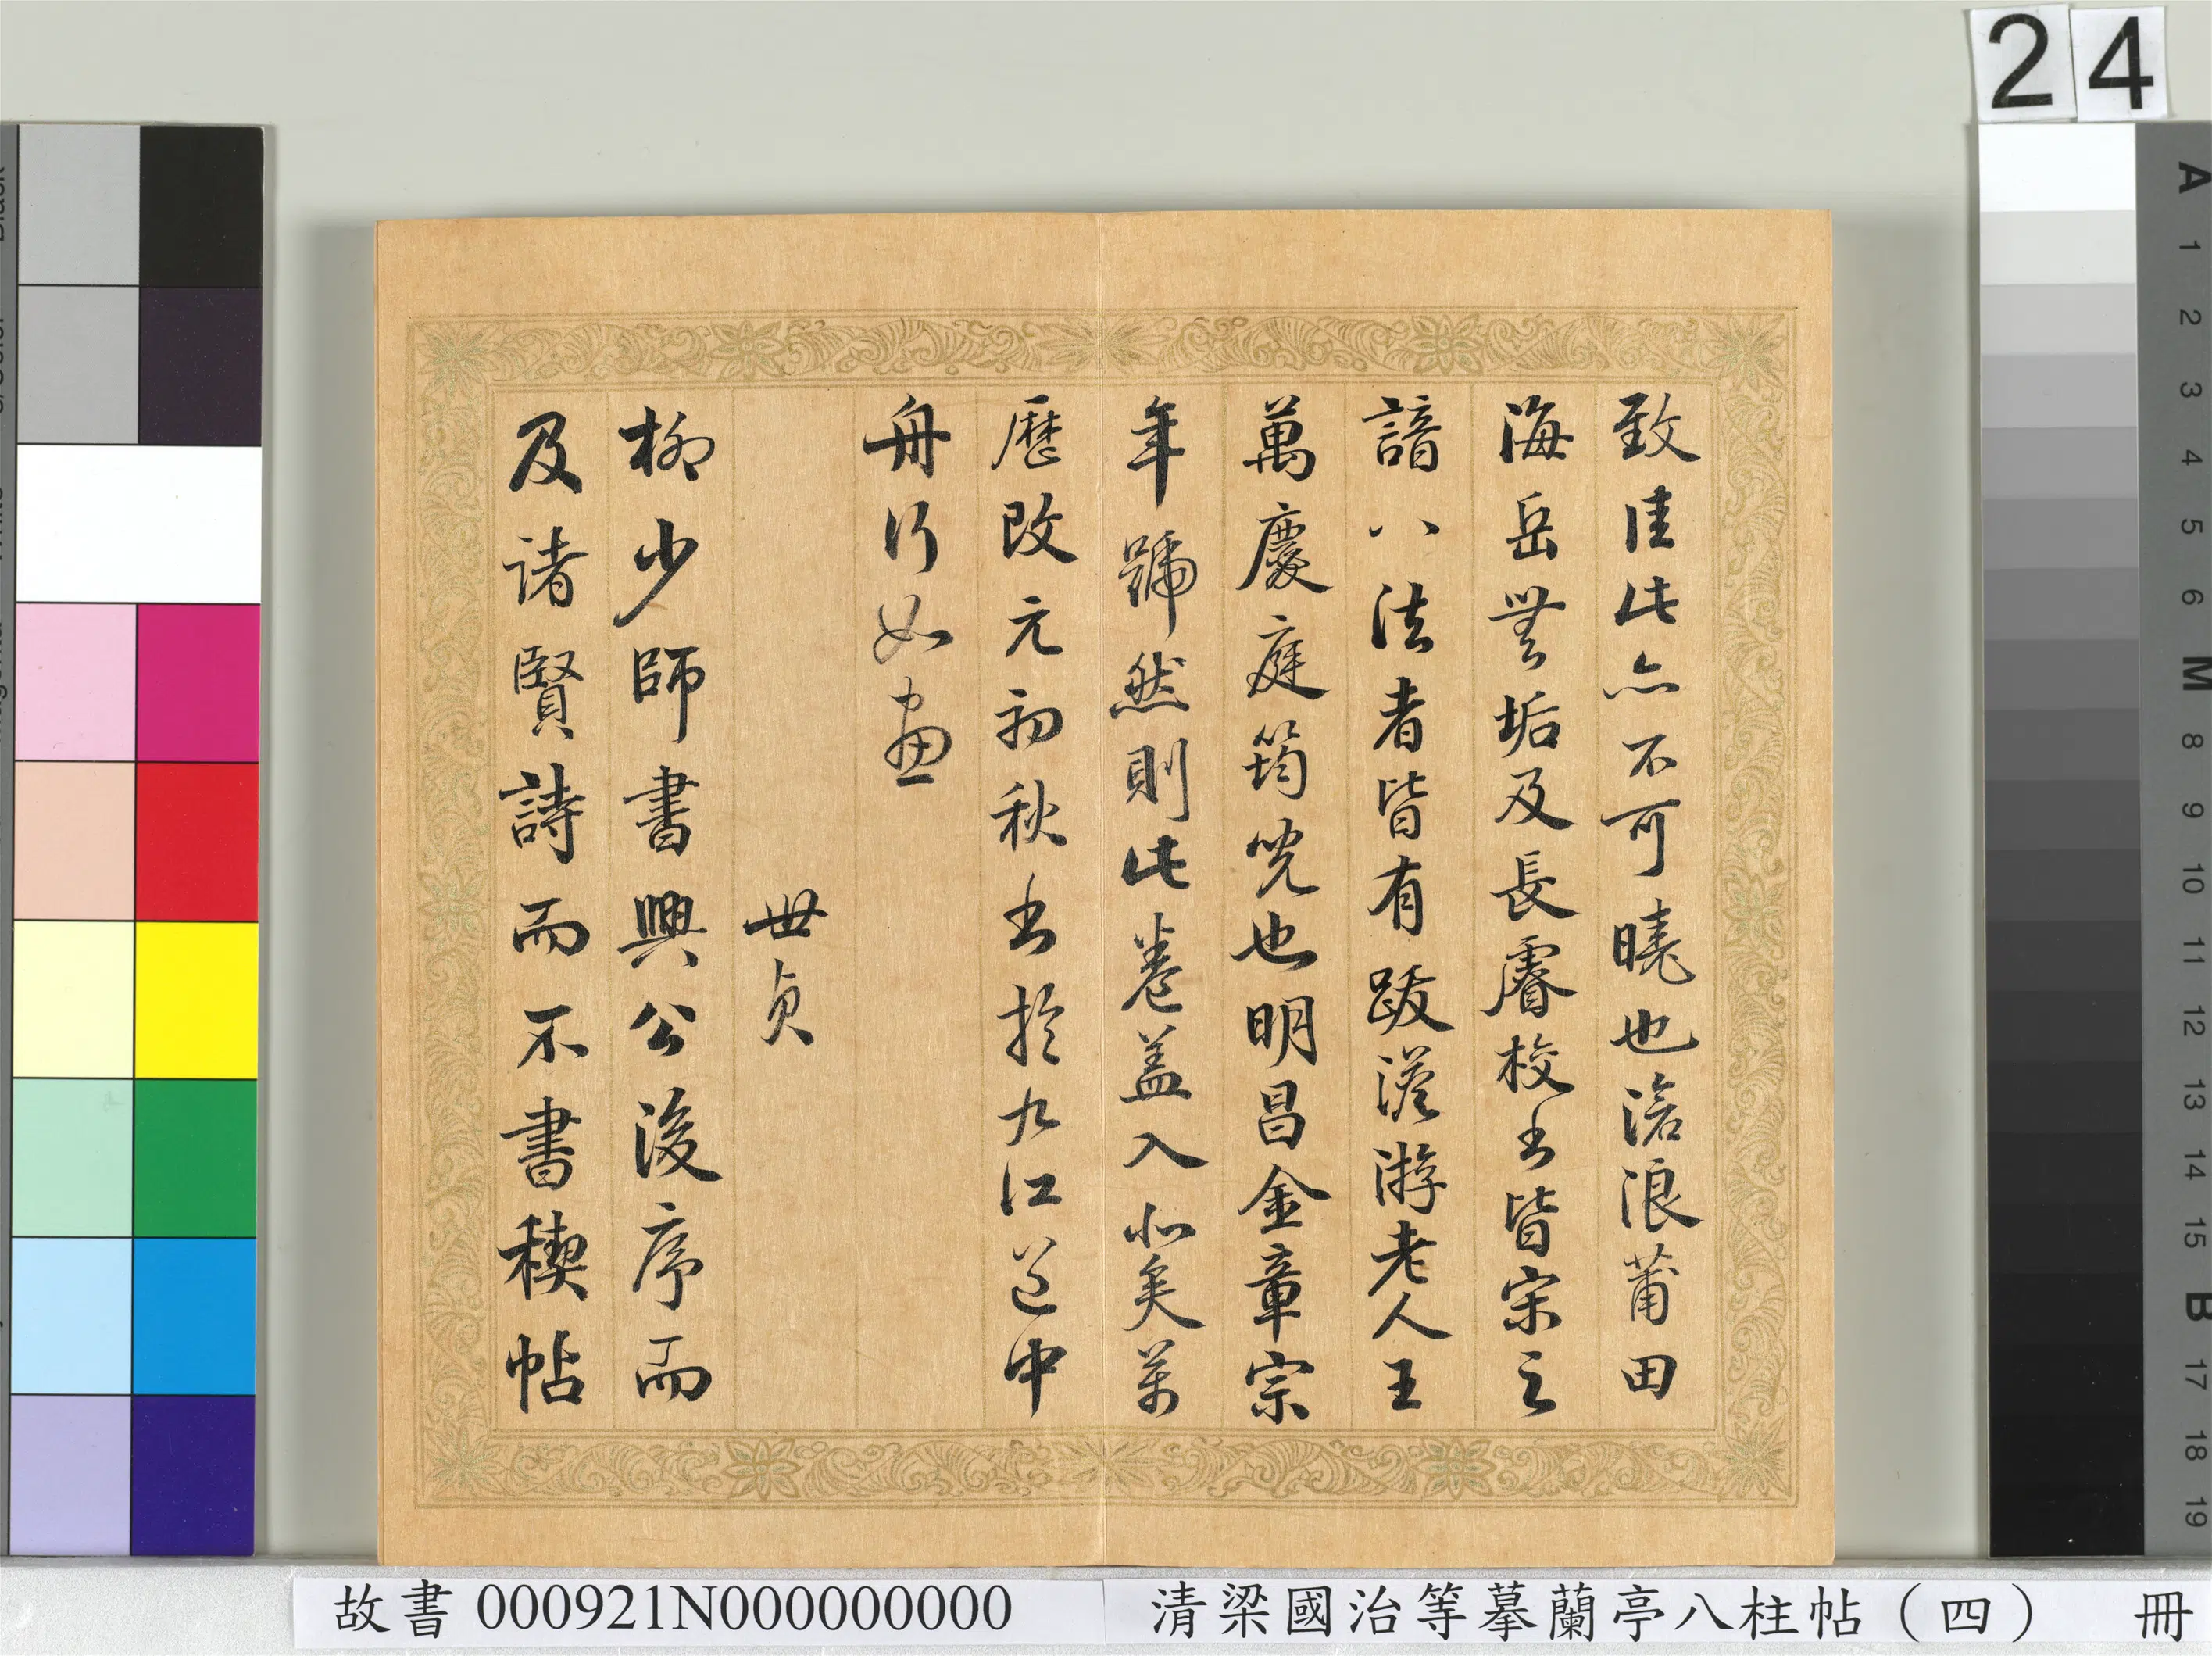 致佳此亦不可曉也滄浪莆田
海岳無垢及長睿校書皆宗之
諳八法者皆有跋溪游老人王
萬慶庭筠児也明昌金章宗
年號然則此卷盖入北矣萬
歷改元初秋書於九江道中
舟行如畫
世貞
柳少師書興公後序而
及諸賢詩而不書稧帖
24
A
1
2
3
4
5
6
M
8
9
10
11
12
13
14
15
B
17
18
19
故書 000921N000000000 清梁國治等摹蘭亭八柱帖（四） 冊